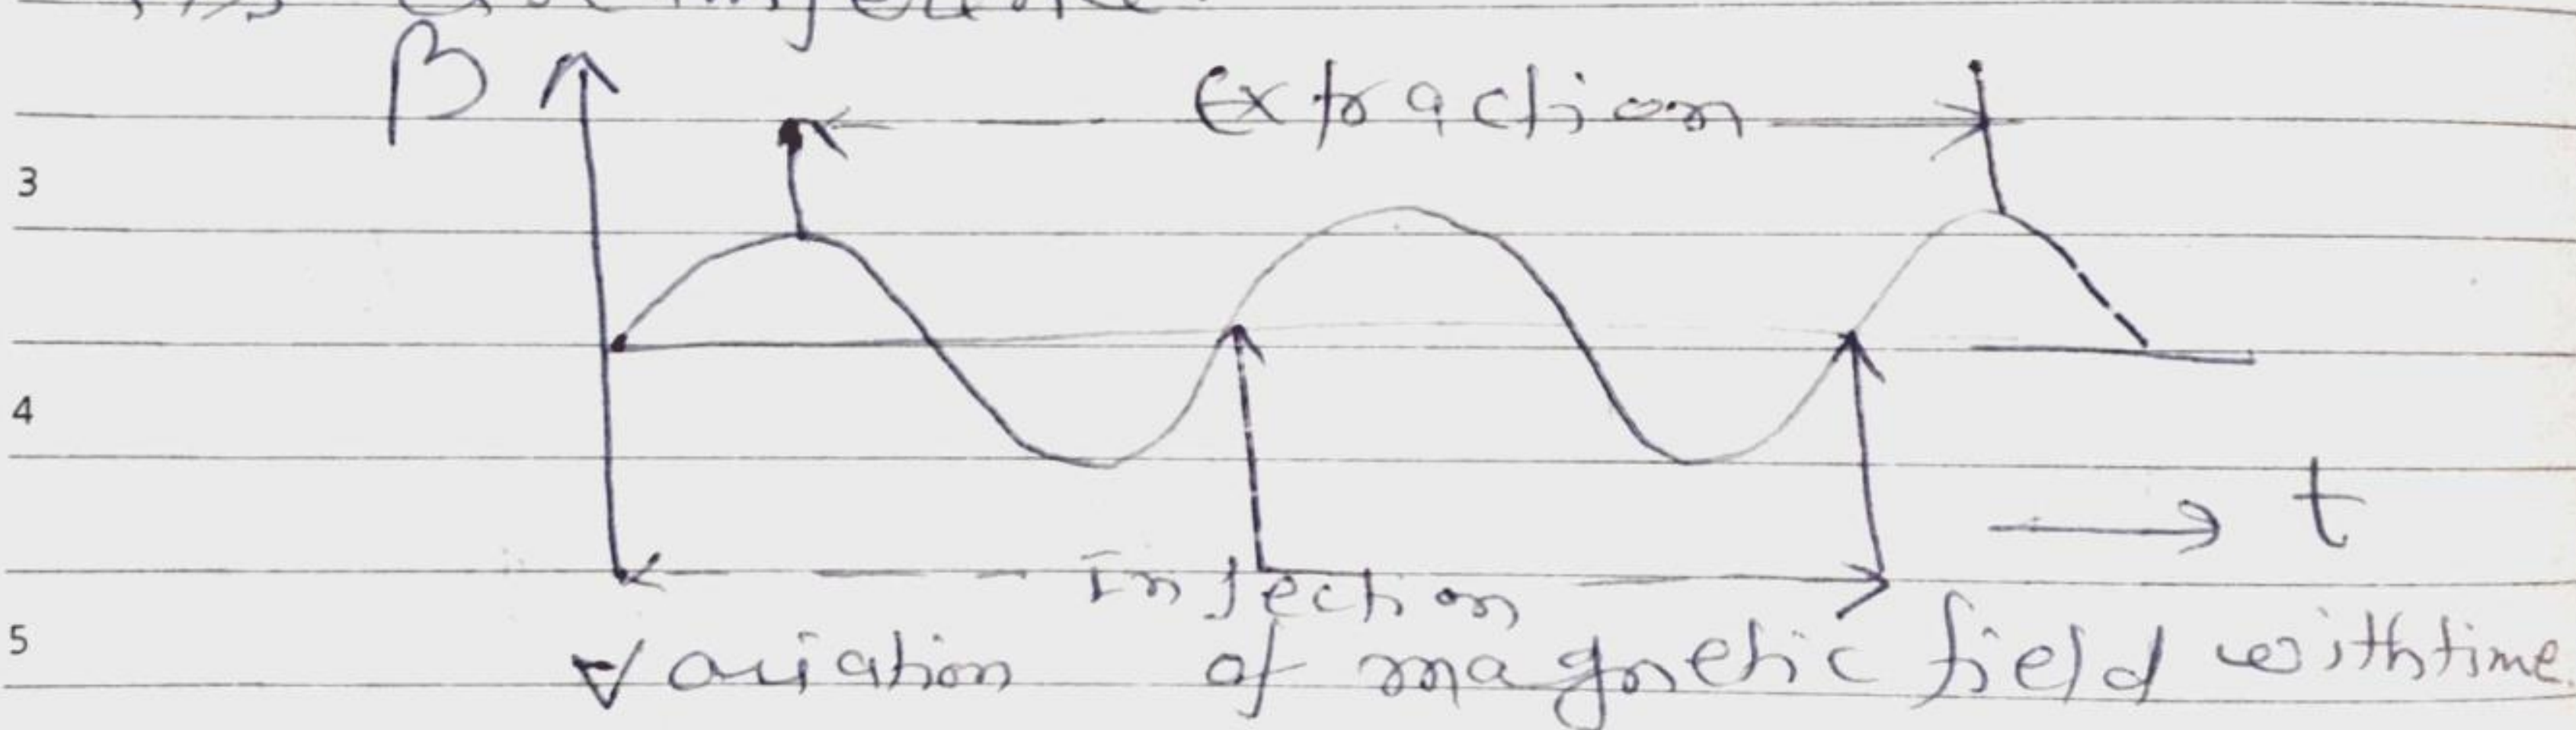 β
Extraction
3
4
t
Injection
5
Variation of magnetic field with time.